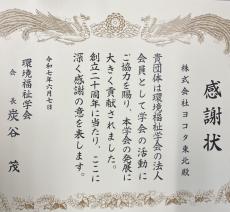 感謝状
株式会社ヨコタ東北殿
貴団体は環境福祉学会の法人
会員として学会の活動に
ご協力を賜り、本学会の発展に
大きく貢献されました。
創立二十周年に当たり、ここに
深く感謝の意を表します。
令和七年六月七日
環境福祉学会
会長 炭谷 茂